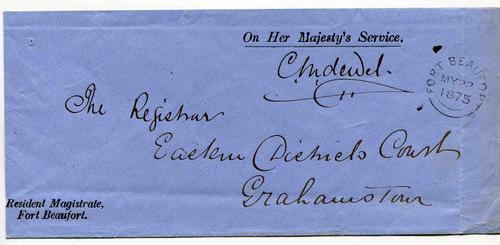 On Her Majesty's Service.
FORT BEAUFORT
MY 22
1875
The Registrar
Eastern Districts Court
Grahamstown
Resident Magistrate,
Fort Beaufort.